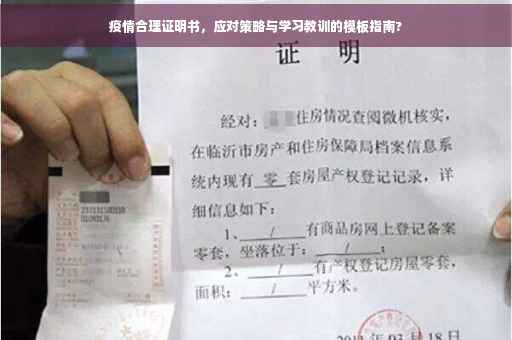 疫情合理证明书，应对策略与学习教训的模板指南?
证 明
经对: 住房情况查阅微机核实,
在临沂市房产和住房保障局档案信息系
统内现有 零 套房屋产权登记记录, 详
细信息如下:
1、 / 有商品房网上登记备案
零套, 坐落位于: / ;
2、 / 有产权登记房屋零套,
面积: / 平方米。
03 月 18 日